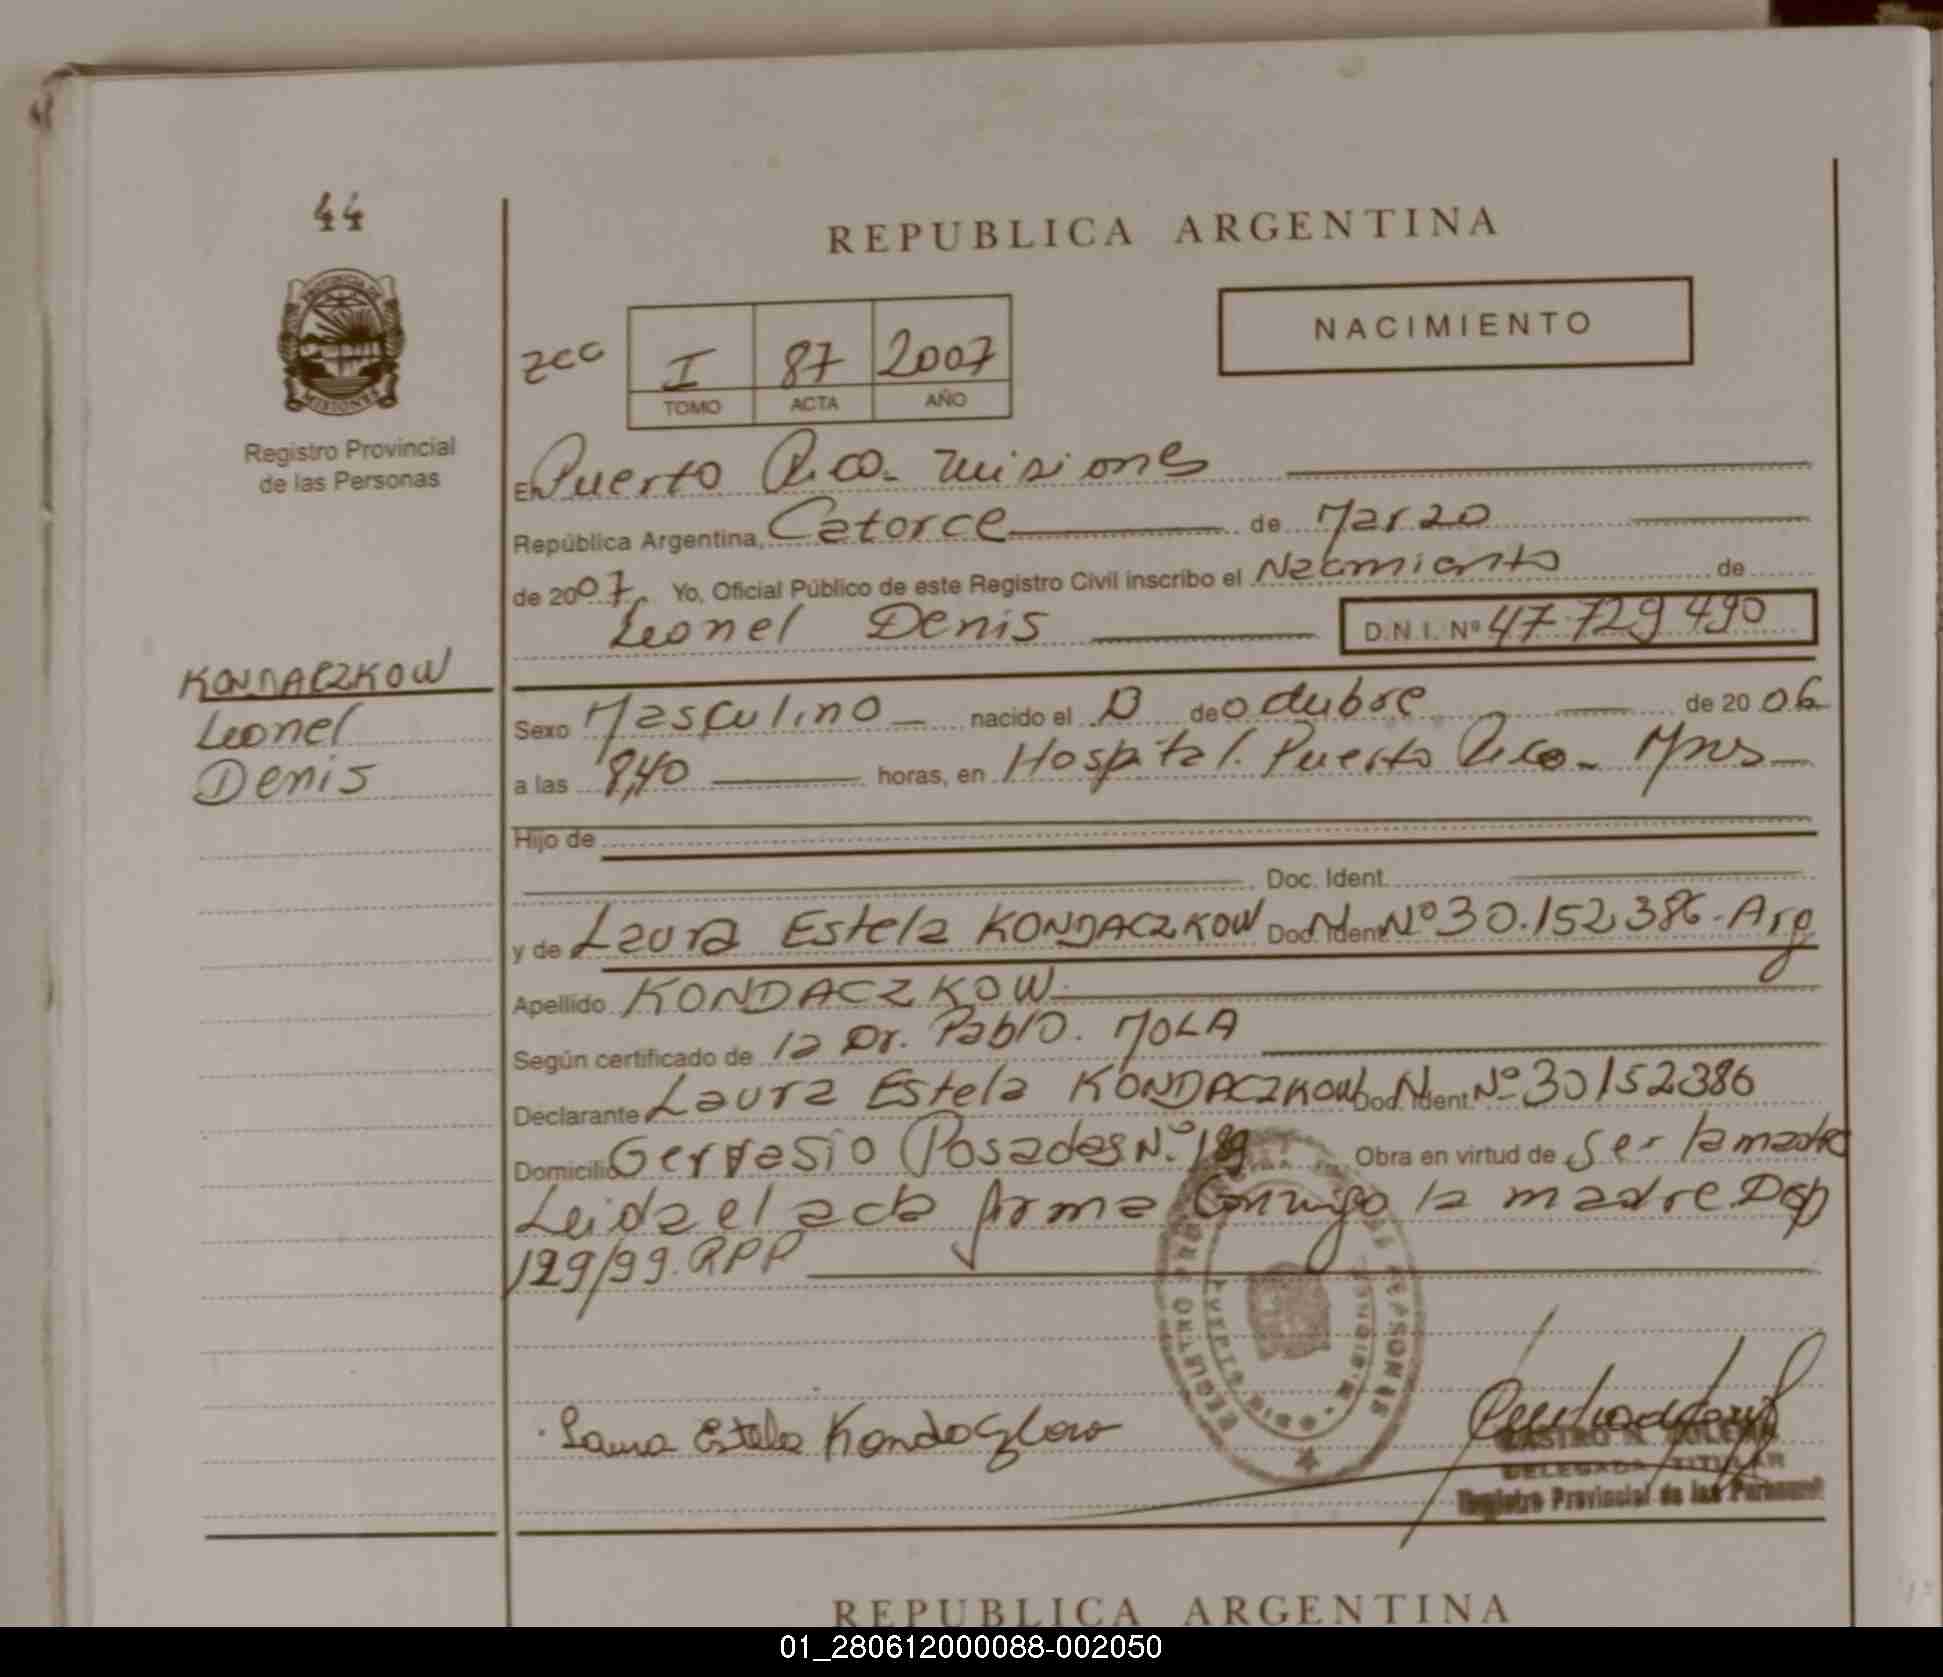 44
REPUBLICA ARGENTINA
NACIMIENTO
I 87 2007
TOMO ACTA AÑO
MISIONES
Registro Provincial
de las Personas
En Puerto Rico. Misiones
República Argentina, Catorce de Marzo
de 2007. Yo, Oficial Público de este Registro Civil inscribo el Nacimiento de
Leonel Denis D.N.I. Nº 47.729.490
KONDACZKOW
Leonel
Denis
Sexo Masculino nacido el de octubre de 2006
a las 8,40 horas, en Hospital. Puerto Rico. Mnes
Hijo de
Doc. Ident.
y de Laura Estela KONDACZKOW Doc. Ident. Nº 30.152.386. Arg
Apellido KONDACZKOW
Según certificado de la Dr. Pablo. MOLA
Declarante Laura Estela KONDACZKOW Doc. Ident. Nº 30152386
Domicilio Gervasio Posadas N.º 189 Obra en virtud de ser la madre
Leida el acta firma conmigo la madre Disp
129/99. RPP
Laura Estela Kondaczkow
DELEGADA TITULAR
Registro Provincial de las Personas
REPUBLICA ARGENTINA
01_280612000088-002050